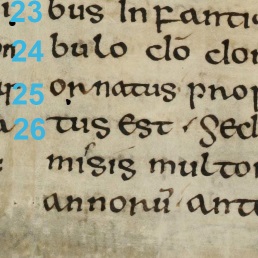 23 bus infanti
24 bulo clō clon
25 ornatus prop
26 tus est · Sed
misis multo
annorū ant